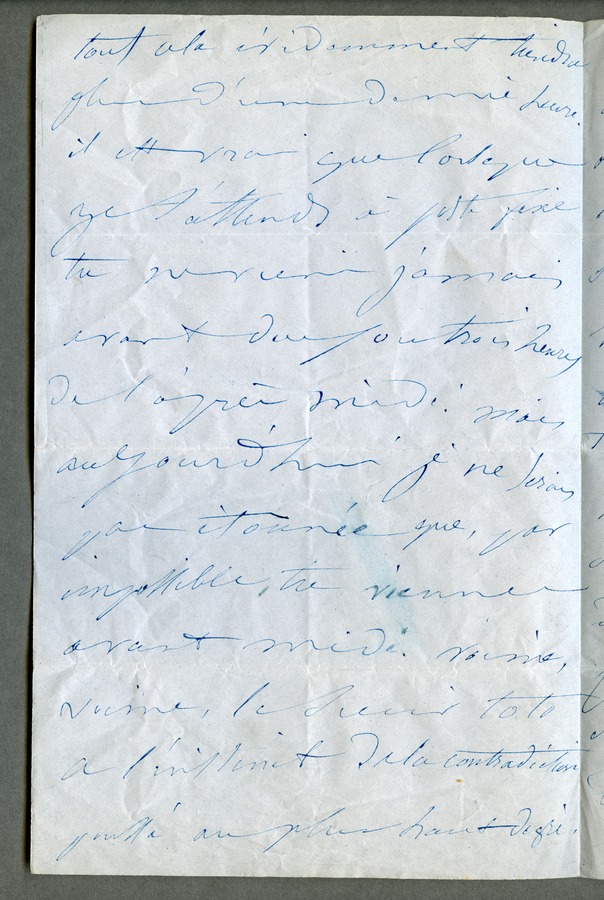 tout cela évidemment tiendra
plus d'une demie heure.
il est vrai que lorsque
je t'attends à poste fixe
tu ne viens jamais
avant deux ou trois heures
de l'après midi. mais
aujourd'hui je ne serais
pas étonnée que, par
impossible, tu viennes
avant midi. voime,
voime, le sieur toto
a l'instinct de la contradiction
poussé au plus haut degré.